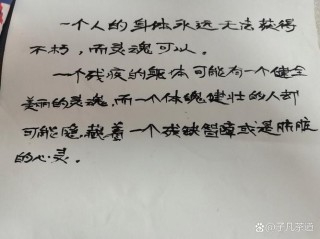 一个人的身体永远无法获得
不朽，而灵魂可以。
一个残疾的躯体可能有一个健全
美丽的灵魂，而一个体魄健壮的人却
可能隐藏着一个残缺智障或是肮脏
的心灵。